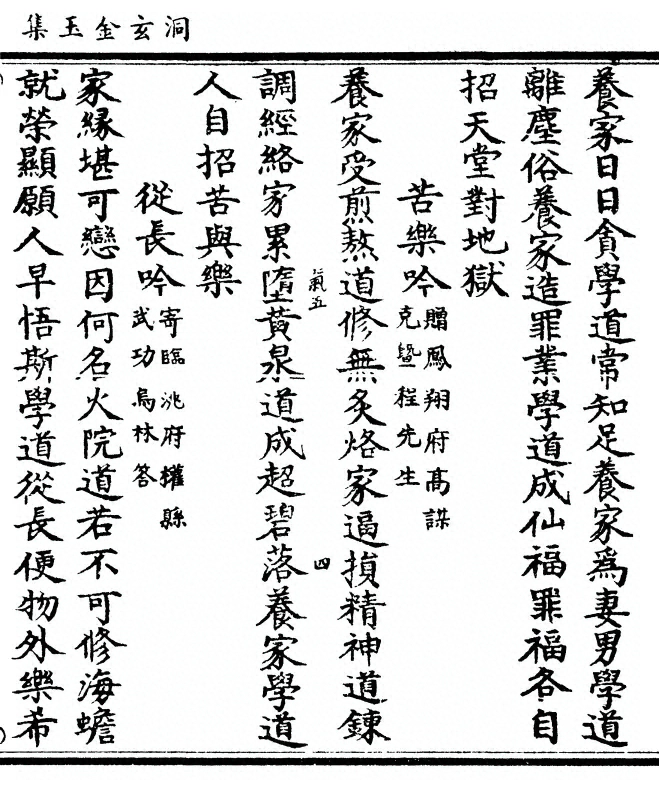 洞玄金玉集
養家日日貪學道常知足養家爲妻男學道
離塵俗養家造罪業學道成仙福罪福各自
招天堂對地獄
苦樂吟
贈鳳翔府髙謀
克曁程先生
養家受煎熬道修無炙烙家逼損精神道鍊
氣五
四
調經絡家累墮黃泉道成超碧落養家學道
人自招苦與樂
從長吟
寄臨洮府權縣
武功烏林答
家緣堪可戀因何名火院道若不可修海蟾
就榮顯願人早悟斯學道從長便物外樂希